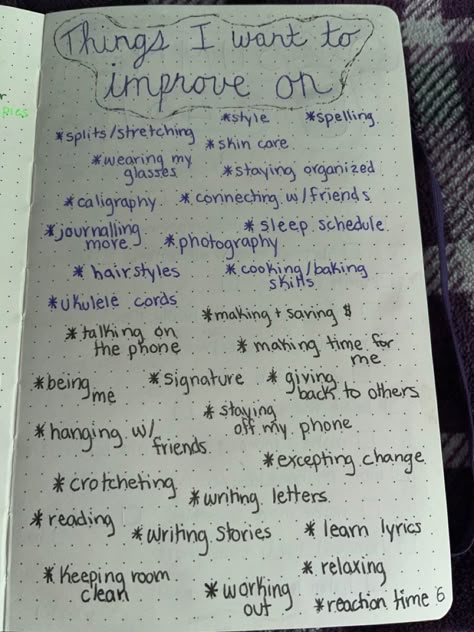 Things I want to
improve on
*style *spelling
*splits/stretching *skin care
*wearing my
glasses *staying organized
*caligraphy *connecting w/friends
*journalling
more *photography *sleep schedule
*hairstyles *cooking/baking
skills
*ukulele cords
*making + saving $
*talking on
the phone *making time for
me
*being
me *signature *giving
back to others
*hanging w/
friends *staying
off my phone
*excepting change
*crotcheting *writing letters
*reading *writing stories *learn lyrics
*keeping room
clean *working
out *relaxing
*reaction time 6